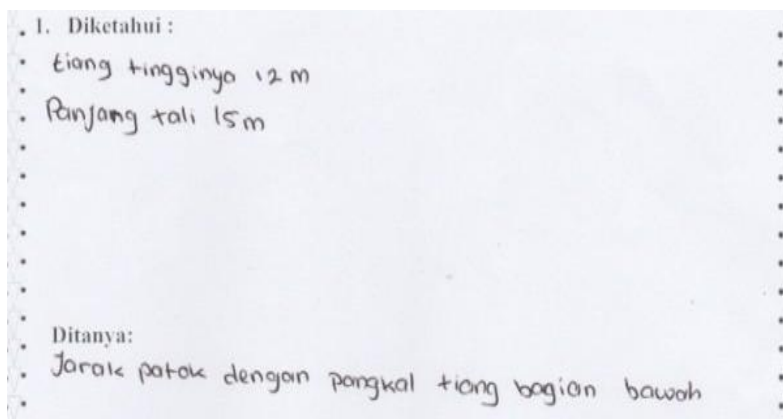 1. Diketahui :
tiang tingginya 12 m
Panjang tali 15 m
Ditanya:
Jarak patok dengan pangkal tiang bagian bawah